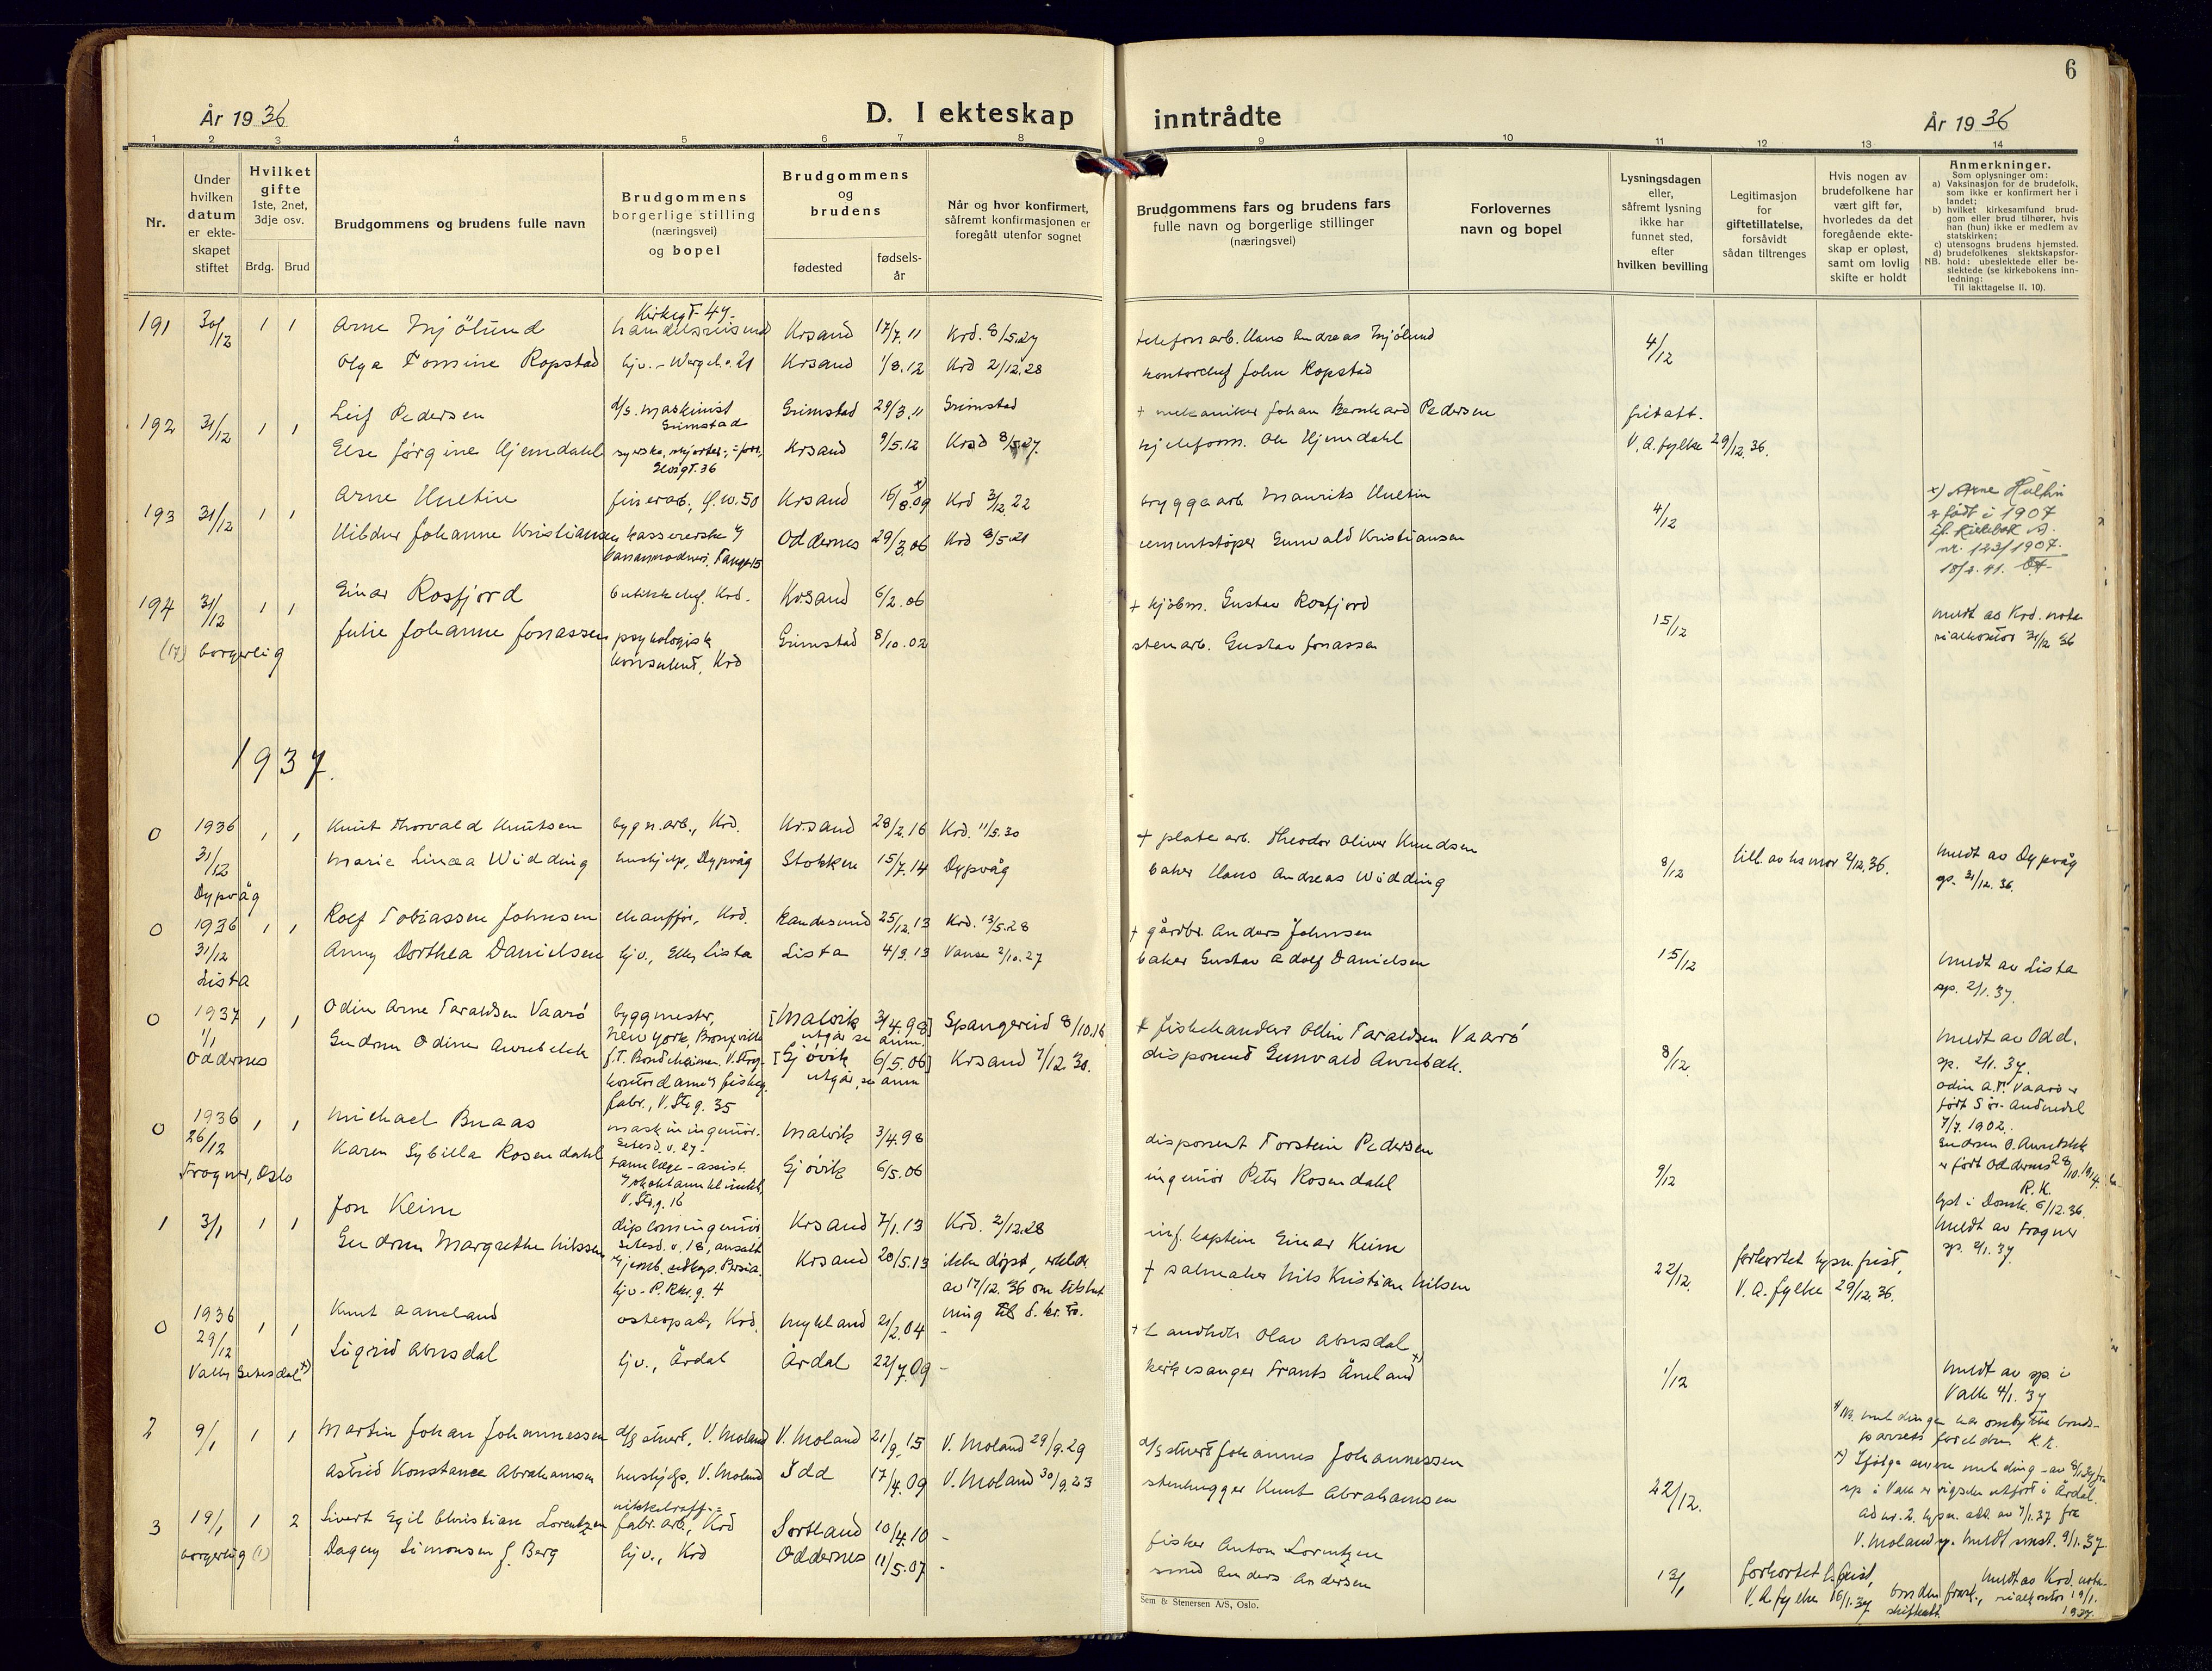 6
År 1936
D. I ekteskap inntrådte
År 1936
1 2 3 4 5 6 7 8 9 10 11 12 13 14
Nr.
Under hvilken datum er ekte-skapet stiftet
Hvilket gifte 1ste, 2net, 3dje osv.
Brdg. Brud
Brudgommens og brudens fulle navn
Brudgommens borgerlige stilling (næringsvei) og bopel
Brudgommens og brudens
fødested
fødsels-år
Når og hvor konfirmert, såfremt konfirmasjonen er foregått utenfor sognet
Brudgommens fars og brudens fars fulle navn og borgerlige stillinger (næringsvei)
Forlovernes navn og bopel
Lysningsdagen eller, såfremt lysning ikke har funnet sted, efter hvilken bevilling
Legitimasjon for giftetillatelse, forsåvidt sådan tiltrenges
Hvis nogen av brudefolkene har vært gift før, hvorledes da det foregående ekte-skap er opløst, samt om lovlig skifte er holdt
Anmerkninger.
Som oplysninger om:
a) Vaksinasjon for de brudefolk, som ikke er konfirmert her i landet;
b) hvilket kirkesamfund brud-gom eller brud tilhører, hvis han (hun) ikke er medlem av statskirken;
c) utensogns brudens hjemsted.
d) brudefolkenes slektskapsfor-hold: ubeslektede eller be-slektede (se kirkebokens inn-ledning:
NB. Til iakttagelse II. 10).
191 30/12 1 1 Arne Mjölund Kirkegt. 49 handelsreisend Krsand 17/7.11 Krd. 8/5.27 telefonarb. Hans Andreas Mjölund 4/12
Olga Tomine Ropstad hjv. - Wergel.g. 21 Krsand 1/8.12 Krd 2/12.28 kontorchef John Ropstad
192 31/12 1 1 Leif Pedersen d/s. maskinist Grimstad Grimstad 29/3.11 Grimstad + mekaniker Johan Bernhard Pedersen fritatt.
Else Jørgine Hjemdahl Krsand 9/5.12 Krsd 8/5.27. kjeleform. Ole Hjemdahl V. A. fylke 29/12.36.
193 31/12 1 1 Arne Hultin finerarb., G.W. 50 Krsand 16/8.09 x) Krd 3/12.22 bryggearb. Maurits Hultin 4/12
Hildur Johanne Kristiansen kassererske Oddernes 29/3.06 Krd 8/5.21 cementstøper Gunvald Kristiansen
x) Arne Hultin er født i 1907
jf. kirkebok
nr. 123/1907.
194 31/12 1 1 Einar Rosfjord butikkchef. Krd. Krsand 6/2.06 + kjøbm. Gustav Rosfjord 15/12
(17) borgerlig Julie Johanne Jonassen psykologisk konsulent, Krd Grimstad 8/10.02 stenarb. Gustav Jonassen
meldt av Krd. nota-
rialkontor 31/12 36
1937.
0 1936 31/12 Dypvåg 1 1 Knut Thorvald Knutsen bygn.arb., Krd. Krsand 28/2.16 Krd. 11/5.30 + platearb. Theodor Oliver Knudsen
Marie Linea Widding hushjelp, Dypvåg Stokken 15/7.14 Dypvåg baker Hans Andreas Widding 8/12 till. av hs mor 2/12.36.
meldt av Dypvåg
sp. 31/12.36.
0 1936 31/12 Lista 1 1 Rolf Tobiassen Johnsen chauffør, Krd. Randesund 25/12.13 Krd. 13/5.28 + gårdbr. Anders Johnsen
Anny Dorthea Danielsen hjv., Lista Lista 4/9.13 Vanse 2/10.27 baker Gustav Adolf Danielsen 15/12
meldt av Lista
sp. 2/1.37.
0 1937 1/1 Oddernes 1 1 Odin Arne Taraldsen Vaarø byggmester, New York, Bronxville [Malvik 3/4.98] utgår se anm. Spangereid 8/10.16 + fiskehandler Odin Taraldsen Vaarø
Gudrun Odine Aurebekk kontordame fabr., V. Strg. 35 [Gjøvik 6/5.06] utgår, se anm Krsand 7/12.30. disponent Gunvald Aurebekk. 8/12.
meldt av Odd.
sp. 2/1.37.
Odin A.T. Vaarø er
født Sør-Audnedal
7/7.1902.
Gudrun O. Aurebekk
er født Oddernes 28/10.1914.
R.K.
0 1936 26/12 Frogner, Oslo 1 1 Michael Buaas maskiningeniør. Malvik 3/4.98 disponent Torstein Pedersen
Karen Sybilla Rosendahl tannlæge-assist. V. Strg. 16 Gjøvik 6/5.06 ingeniør Peter Rosendahl 9/12
lyst i Domk. 6/12.36.
meldt av Frogner
sp. 2/1.37.
1 3/1 1 1 Jon Keim diplomingeniør Krsand 7/1.13 Krd. 2/12.28 inf. kaptein Einar Keim
Gudrun Margrethe Nilssen hjv - P. Rkr. g. 4 Krsand 20/5.13 ikke døpt, erklær. av 17/12.36 om tilslut ning til d. kr. tro. + salmaker Nils Kristian Nilsen 22/12. forkortet lysn. frist, V. A. fylke 29/12.36.
0 1936 29/12 Valle, Setesdal x) 1 1 Knut Aaneland osteopat, Krd. Mykland 21/2.04 - + Landhdl. Olav Abusdal
Sigrid Abusdal hjv., Årdal Årdal 22/7.09 - kirkesanger Frants Åneland 1/12
meldt av sp. i
Valle 4/1.37
NB. meldingen har ombyttet brude-
parrets foreldre R.K.
x) Ifølge senere melding av 8/1.37 fra
sp. i Valle er vigselen utført i Årdal.
2 9/1 1 1 Martin Johan Johannessen d/s stuert, V. Moland V. Moland 21/9.15 V. Moland 29/9.29 d/s stuert Johannes Johannessen
Astrid Konstance Abrahamsen hushjelp, V. Moland Idd 17/4.09 V. Moland 30/9.23 stenhugger Knut Abrahamsen 22/12.
ad nr. 2. lysn. att. av 7/1.37 fra
V. Moland sp. meldt smst. 9/1.37.
3 19/1 1 2 Sivert Egil Christian Lorentzen nikkelraff.= fabr.arb., Krd Sortland 10/4.10 - fisker Anton Lorentzen
borgerlig (1) Dagny Simonsen f. Berg hjv., Krd Oddernes 11/5.07 - smed Anders Andersen 13/1 forkortet l. frist, V. A fylke 16/1.37 bruden frask., skifteatt.
meldt av Krd. nota-
rialkontor 19/1.
1937.
Sem & Stenersen A/S, Oslo.